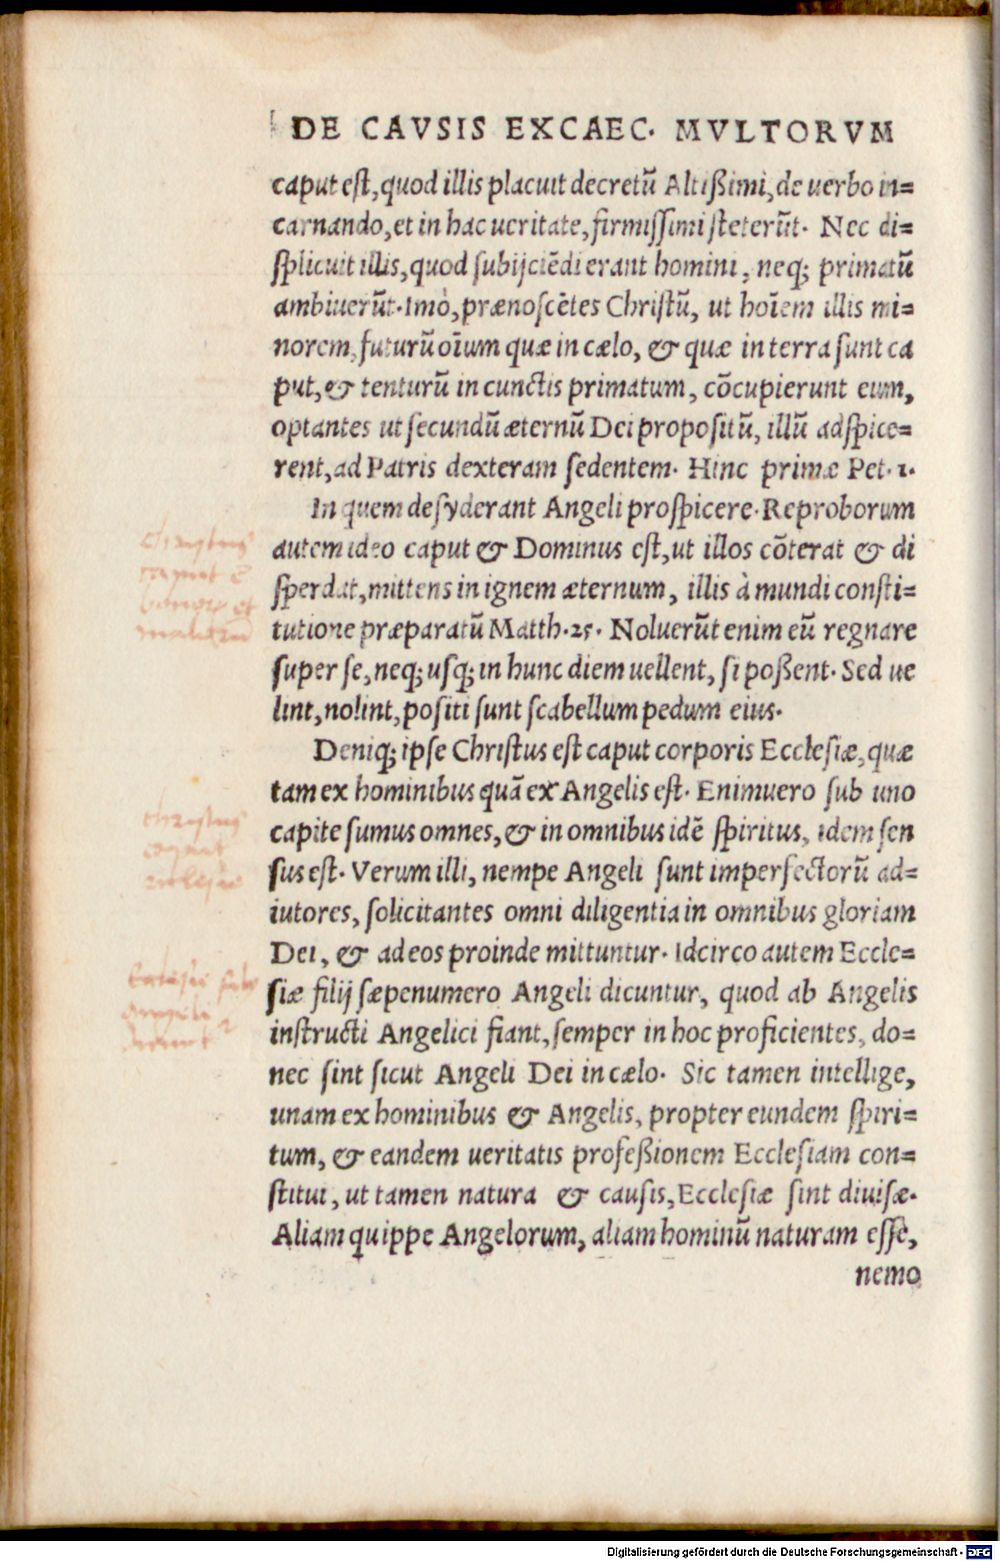 DE CAVSIS EXCAEC. MVLTORVM
caput est, quod illis placuit decretū Altißimi, de uerbo in=
carnando, et in hac ueritate, firmissimi steterūt. Nec di=
splicuit illis, quod subijciēdi erant homini, neq; primatū
ambiuerūt. Imò, prænoscētes Christū, ut hoīem illis mi=
norem, futurū oīum quæ in cælo, & quæ in terra sunt ca
put, & tenturū in cunctis primatum, cōcupierunt eum,
optantes ut secundū æternū Dei propositū, illū adspice=
rent, ad Patris dexteram sedentem. Hinc primæ Pet. 1.
In quem desyderant Angeli prospicere. Reproborum
autem ideo caput & Dominus est, ut illos cōterat & di
sperdat, mittens in ignem æternum, illis à mundi consti=
tutione præparatū Matth. 25. Noluerūt enim eū regnare
super se, neq; usq; in hunc diem uellent, si poßent. Sed ue
lint, nolint, positi sunt scabellum pedum eius.
Deniq; ipse Christus est caput corporis Ecclesiæ, quæ
tam ex hominibus quā ex Angelis est. Enimuero sub uno
capite sumus omnes, & in omnibus idē spiritus, idem sen
sus est. Verum illi, nempe Angeli sunt imperfectorū ad=
iutores, solicitantes omni diligentia in omnibus gloriam
Dei, & ad eos proinde mittuntur. Idcirco autem Eccle=
siæ filij sæpenumero Angeli dicuntur, quod ab Angelis
instructi Angelici fiant, semper in hoc proficientes, do=
nec sint sicut Angeli Dei in cælo. Sic tamen intellige,
unam ex hominibus & Angelis, propter eundem spiri=
tum, & eandem ueritatis profeßionem Ecclesiam con=
stitui, ut tamen natura & causis, Ecclesiæ sint diuisæ.
Aliam quippe Angelorum, aliam hominū naturam esse,
nemo
christus
caput
Digitalisierung gefördert durch die Deutsche Forschungsgemeinschaft - DFG